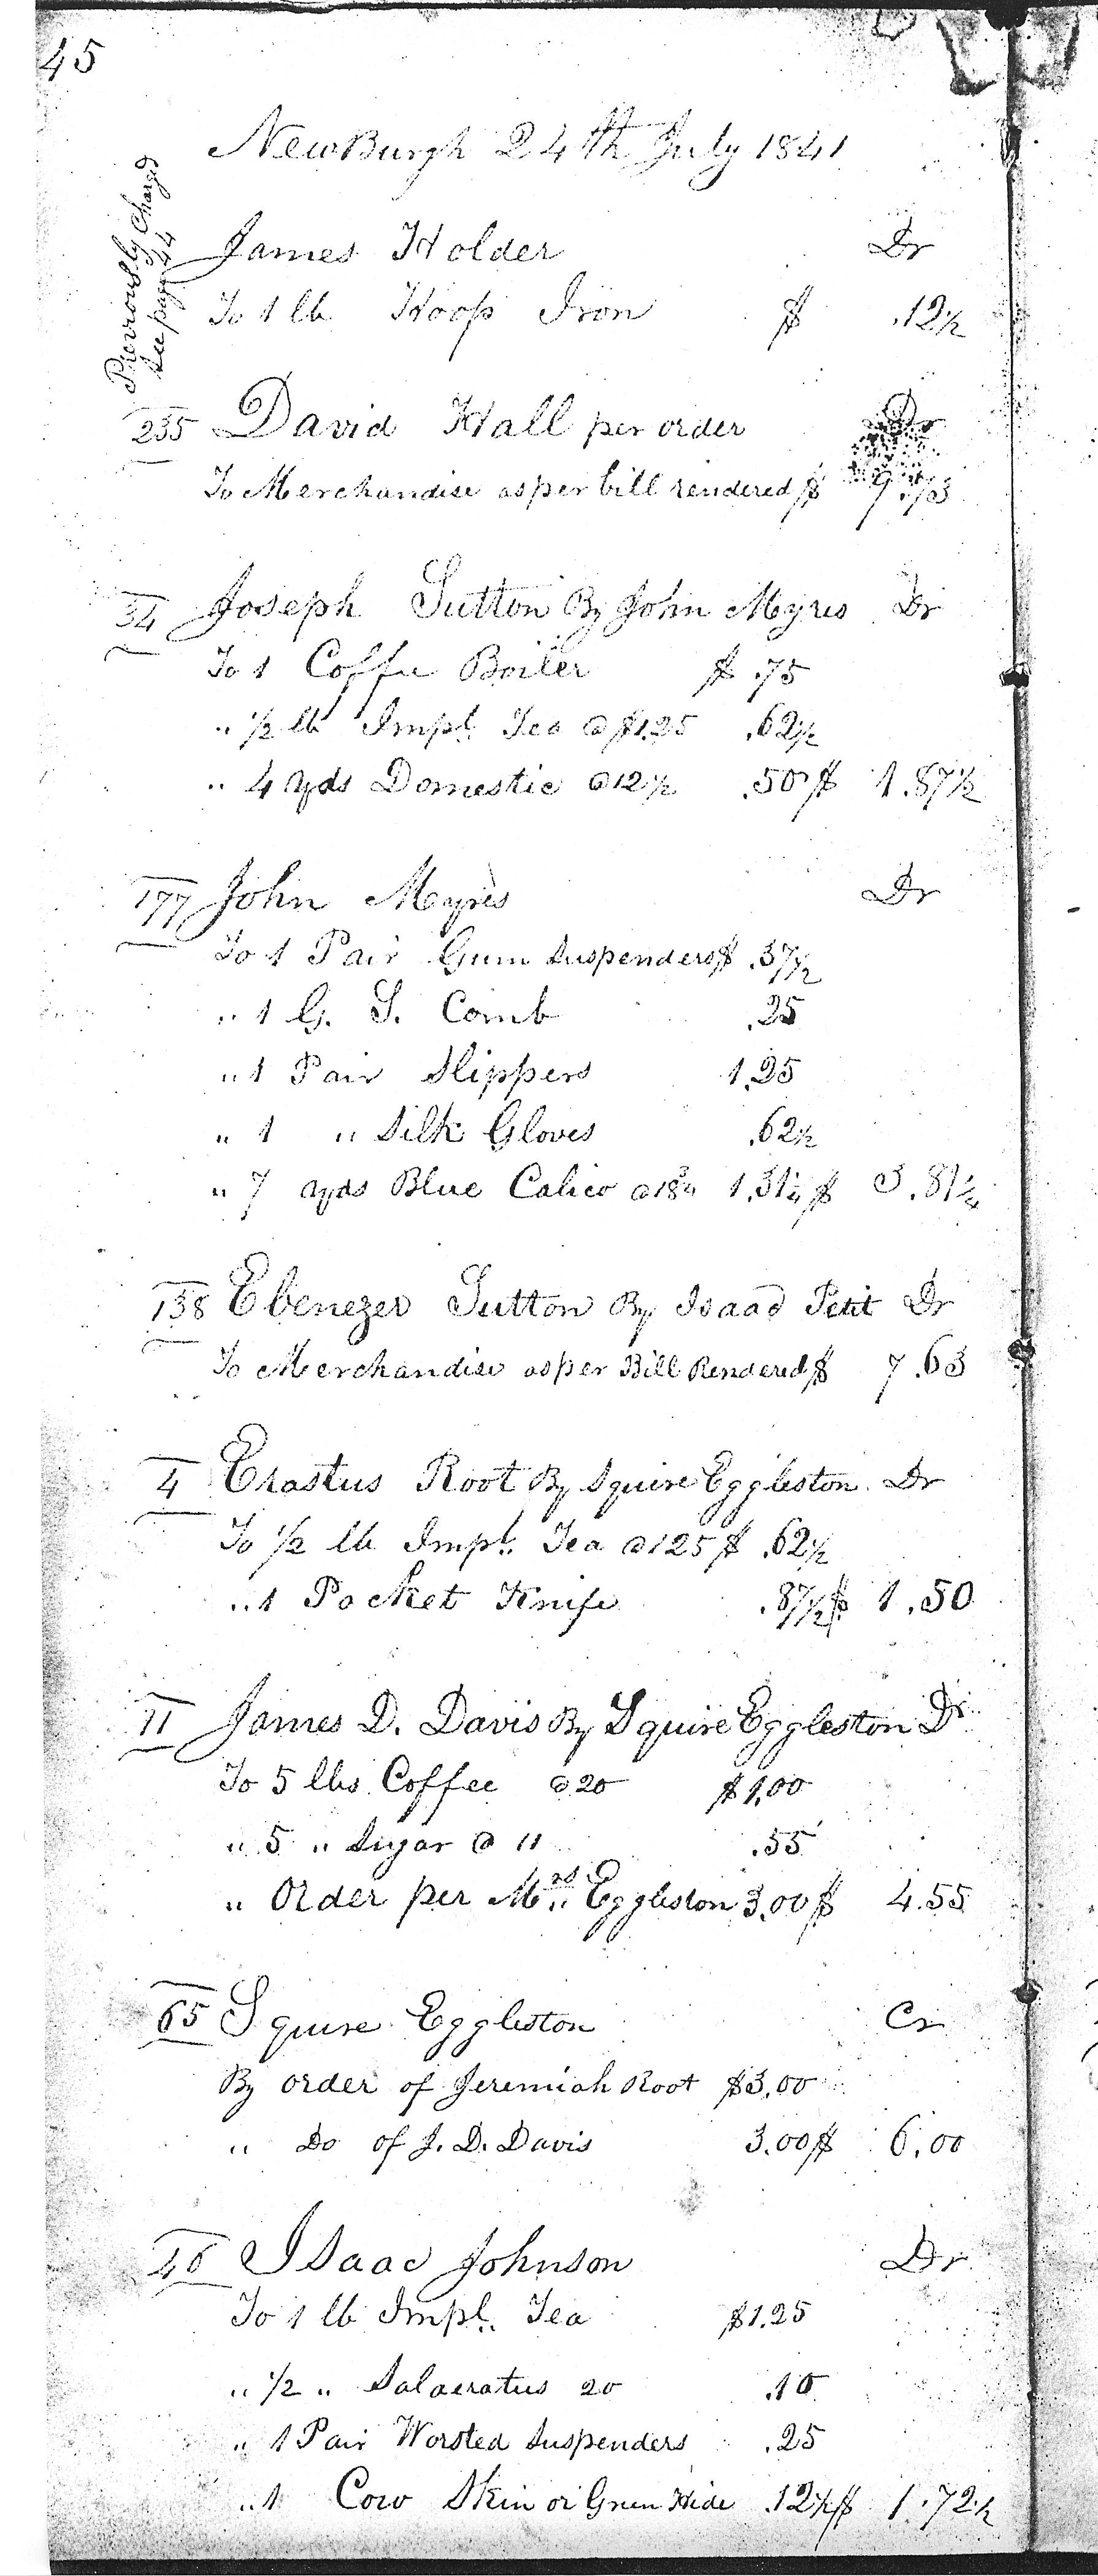 45
NewBurgh 24th July 1841
Previously Charged
See page 44
James Holder Dr
To 1 lb Hoop Iron $ .12½
235 David Hall per order Dr
To Merchandise as per bill rendered $ 9.73
34 Joseph Sutton By John Myres Dr
To 1 Coffee Boiler $ .75
" ½ lb Impl. Tea @ $1.25 .62½
" 4 yds Domestic @12½ .50 $ 1.87½
177 John Myres Dr
To 1 Pair Gum Suspenders $ .37½
" 1 G. S. Comb .25
" 1 Pair Slippers 1.25
" 1 " Silk Gloves .62½
" 7 yds Blue Calico @18¾ 1.31¼ $ 3.81¼
138 Ebenezer Sutton By Isaac Petit Dr
To Merchandise as per Bill Rendered $ 7.63
4 Erastus Root By Squire Eggleston Dr
To ½ lb Impl. Tea @125 $ .62½
" 1 Pocket Knife .87½ $ 1.50
11 James D. Davis By Squire Eggleston Dr
To 5 lbs Coffee @ 20 $1.00
" 5 " Sugar @ 11 .55
" Order per Mrs Eggleston 3.00 $ 4.55
65 Squire Eggleston Cr
By order of Jeremiah Root $3.00
" Do of J. D. Davis 3.00 $ 6.00
46 Isaac Johnson Dr
To 1 lb Impl. Tea $1.25
" ½ " Salaeratus 20 .10
" 1 Pair Worsted Suspenders .25
" 1 Cow Skin or Green Hide .12½ $ 1.72½